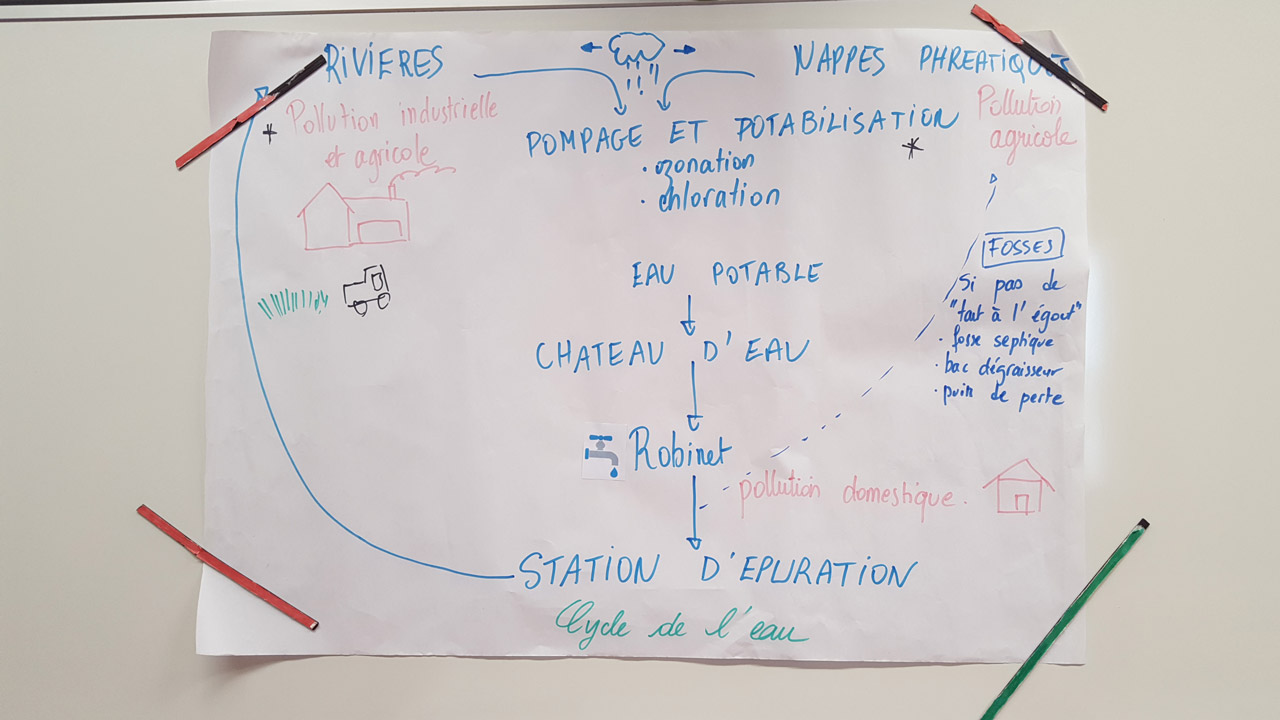 RIVIERES
NAPPES PHREATIQUES
* Pollution industrielle
et agricole
POMPAGE ET POTABILISATION *
• ozonation
• chloration
Pollution
agricole
EAU POTABLE
CHATEAU D'EAU
Robinet
FOSSES
Si pas de
"tout à l'égout"
• fosse septique
• bac dégraisseur
• puits de perte
pollution domestique.
STATION D'EPURATION
Cycle de l'eau